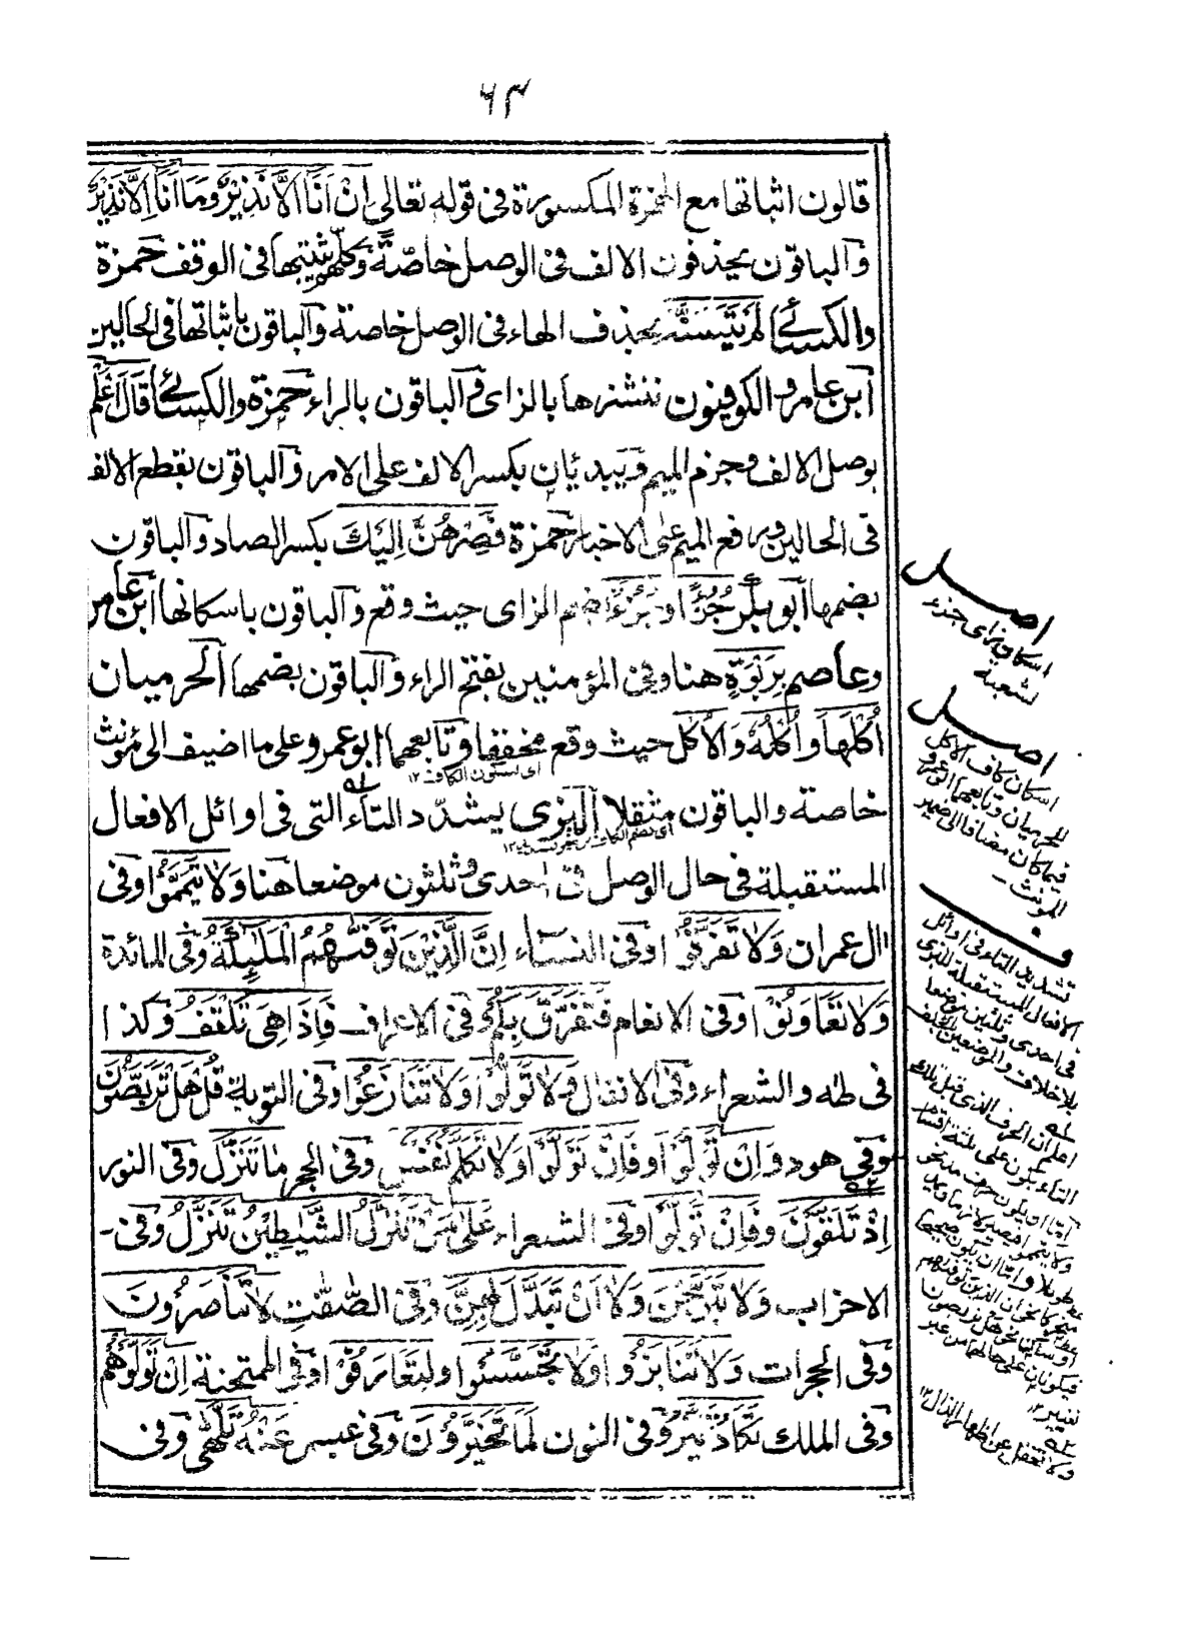 ٦٣
قالون اثباتها مع الهمزة المكسورة فى قوله تعالى اِنْ اَنَا اِلَّا نَذِيْرٌ وَمَا اَنَا اِلَّا نَذِيْرٌ
والباقون يحذفون الالف فى الوصل خاصّةً وكلّهم يثبتها فى الوقف حمزة
والكسائى لَمْ يَتَسَنَّهْ بحذف الهاء فى الوصل خاصة والباقون باثباتها فى الحالين
ابن عامر والكوفيون ننشزها بالزاى والباقون بالراء حمزة والكسائى قَالَ اعْلَمْ
بوصل الالف وجزم الميم ويبديان بكسر الالف على الامر والباقون بقطع الالف
فى الحالين وبرفع الميم على الاخبار حمزة فَصِرْهُنَّ اِلَيْكَ بكسر الصاد والباقون
بضمها ابو بكر جُزُءًا وجُزُءٌ بضم الزاى حيث وقع والباقون باسكانها ابن عامر
وعاصم بِرَبْوَةٍ هنا وفى المؤمنين بفتح الراء والباقون بضمها الحرميان
اُكْلَهَا وَاُكْلُهُ وَالْاُكْلِ حيث وقع مخففا وتابعهما ابو عمرو على ما اضيف الى مؤنث
اى بسكون الكاف ١٢
خاصة والباقون مثقلا البزى يشدّد التاء التى فى اوائل الافعال
اى بضم الكاف
المستقبلة فى حال الوصل فى احدى وثلثون موضعا هنا وَلَا تَّيَمَّمُوْا وفى
ال عمران وَلَا تَّفَرَّقُوْا وفى النساء اِنَّ الَّذِيْنَ تَّوَفّٰىهُمُ الْمَلٰٓئِكَةُ وفى المائدة
وَلَا تَّعَاوَنُوْا وفى الانعام فَتَّفَرَّقَ بِكُمْ وفى الاعراف فَاِذَا هِىَ تَّلَقَّفُ وكذا
فى طه والشعراء وفى الانفال وَلَا تَّوَلَّوْا وَلَا تَّنَازَعُوْا وفى التوبة قُلْ هَلْ تَّرَبَّصُوْنَ
وفى هود وَاِنْ تَّوَلَّوْا وفَاِنْ تَّوَلَّوْا وَلَا تَّكَلَّمُ نَفْسٌ وفى الحجر مَا تَّنَزَّلُ وفى النور
اِذْ تَّلَقَّوْنَهٗ وفَاِنْ تَّوَلَّوْا وفى الشعراء عَلٰى مَنْ تَّنَزَّلُ الشَّيٰطِيْنُ تَّنَزَّلُ وفى
الاحزاب وَلَا تَّبَرَّجْنَ وَلَا اَنْ تَّبَدَّلَ بِهِنَّ وفى الصّٰفّٰت لَا تَّنَاصَرُوْنَ
وفى الحجرات وَلَا تَّنَابَزُوْا وَلَا تَّجَسَّسُوْا ولِتَّعَارَفُوْا وفى الممتحنة اِنْ تَّوَلَّوْهُمْ
وفى الملك تَّكَادُ تَّمَيَّزُ وفى النون لَمَا تَّخَيَّرُوْنَ وفى عبس عَنْهُ تَّلَهّٰى وفى
اصل
اسكان زاى جزء
لشعبة
اصل
اسكان كاف الاكل
للحرميان وتابعهما ابو عمرو
فيما كان مضافا الى ضمير
المونث
ف
تشديد التاء فى اوائل
الافعال المستقبلة للبزى
فى احدى وثلثين موضعا
بلا خلاف والموضعين بالخلف
اعلم ان الحرف الذى قبل تلك
التاء يكون على ثلثة اقسام
تغيير ١٢